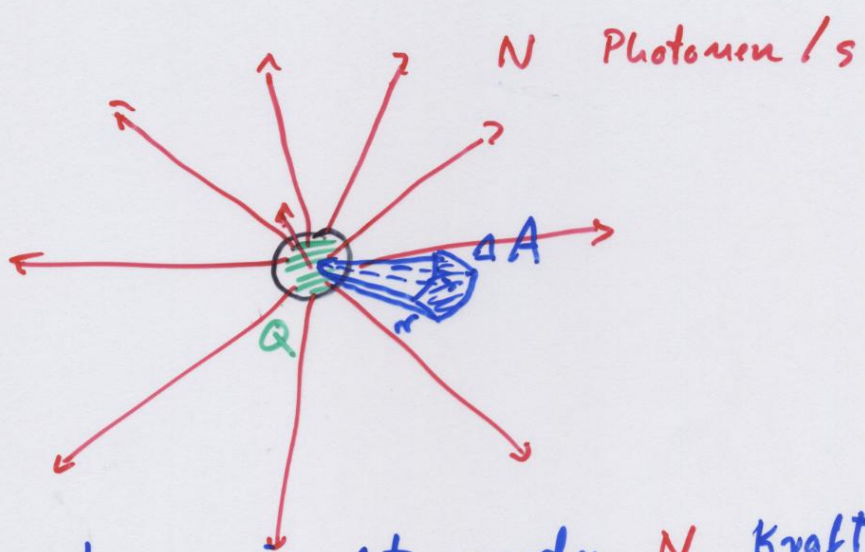 N Photonen / s
ΔA
r
Q
N Kraft